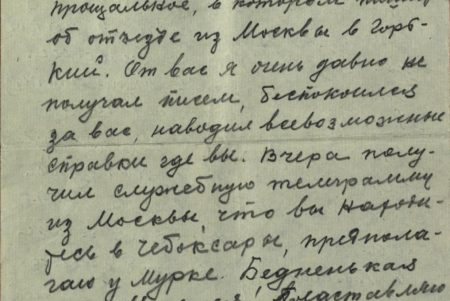 прощальное, в котором
об отъезде из Москвы в Горь-
кий. От вас я очень давно не
получал писем, беспокоился
за вас, наводил всевозможные
справки где вы. Вчера полу-
чил служебную телеграмму
из Москвы, что вы находи-
тесь в Чебоксары, предпола-
гаю у Мурке. Бедненькая